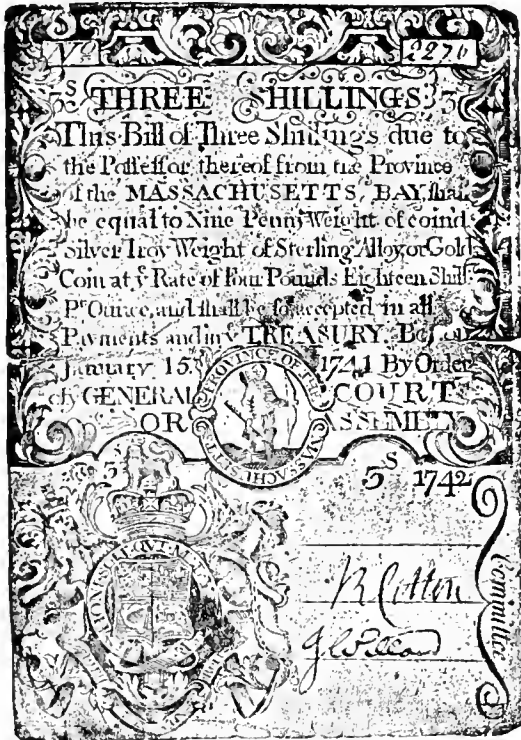 No 2270
3S THREE SHILLINGS 3S
This Bill of Three Shillings due to
the Possessor thereof from the Province
of the MASSACHUSETTS BAY, shall
be equal to Nine Penny Weight of coind
Silver Troy Weight of Sterling Alloy, or Gold
Coin at ye Rate of Four Pounds Eighteen Shills
Pr Ounce, and shall be so accepted in all
Payments and in ye TREASURY. Boston
January 15. 1741 By Order
of ye GENERAL COURT
OR ASSEMBLY
PROVINCE OF THE MASSACHUSETTS
3S 3S 1742
HONI SOIT QUI MAL
Committee
R Cotton
J Willard